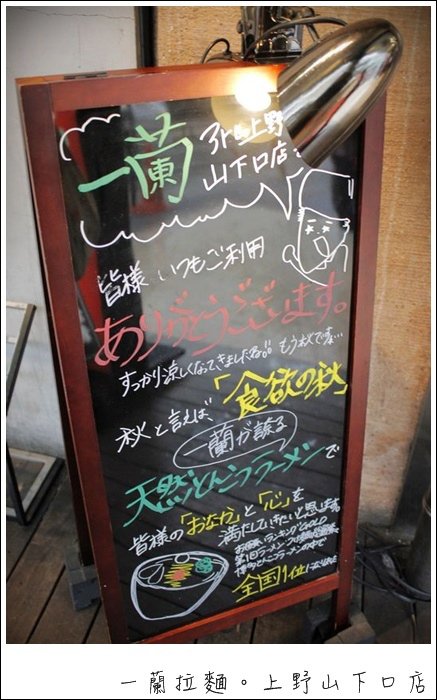 一蘭 アトレ上野
山下口店
皆様 いつもご利用
ありがとうございます。
すっかり涼しくなってきましたね。もう秋ですね…
秋と言えば「食欲の秋」
一蘭が誇る
天然とんこつラーメンで
皆様の「おなか」と「心」を
満たしていきたいと思います。
全国1位
一蘭拉麵。上野山下口店